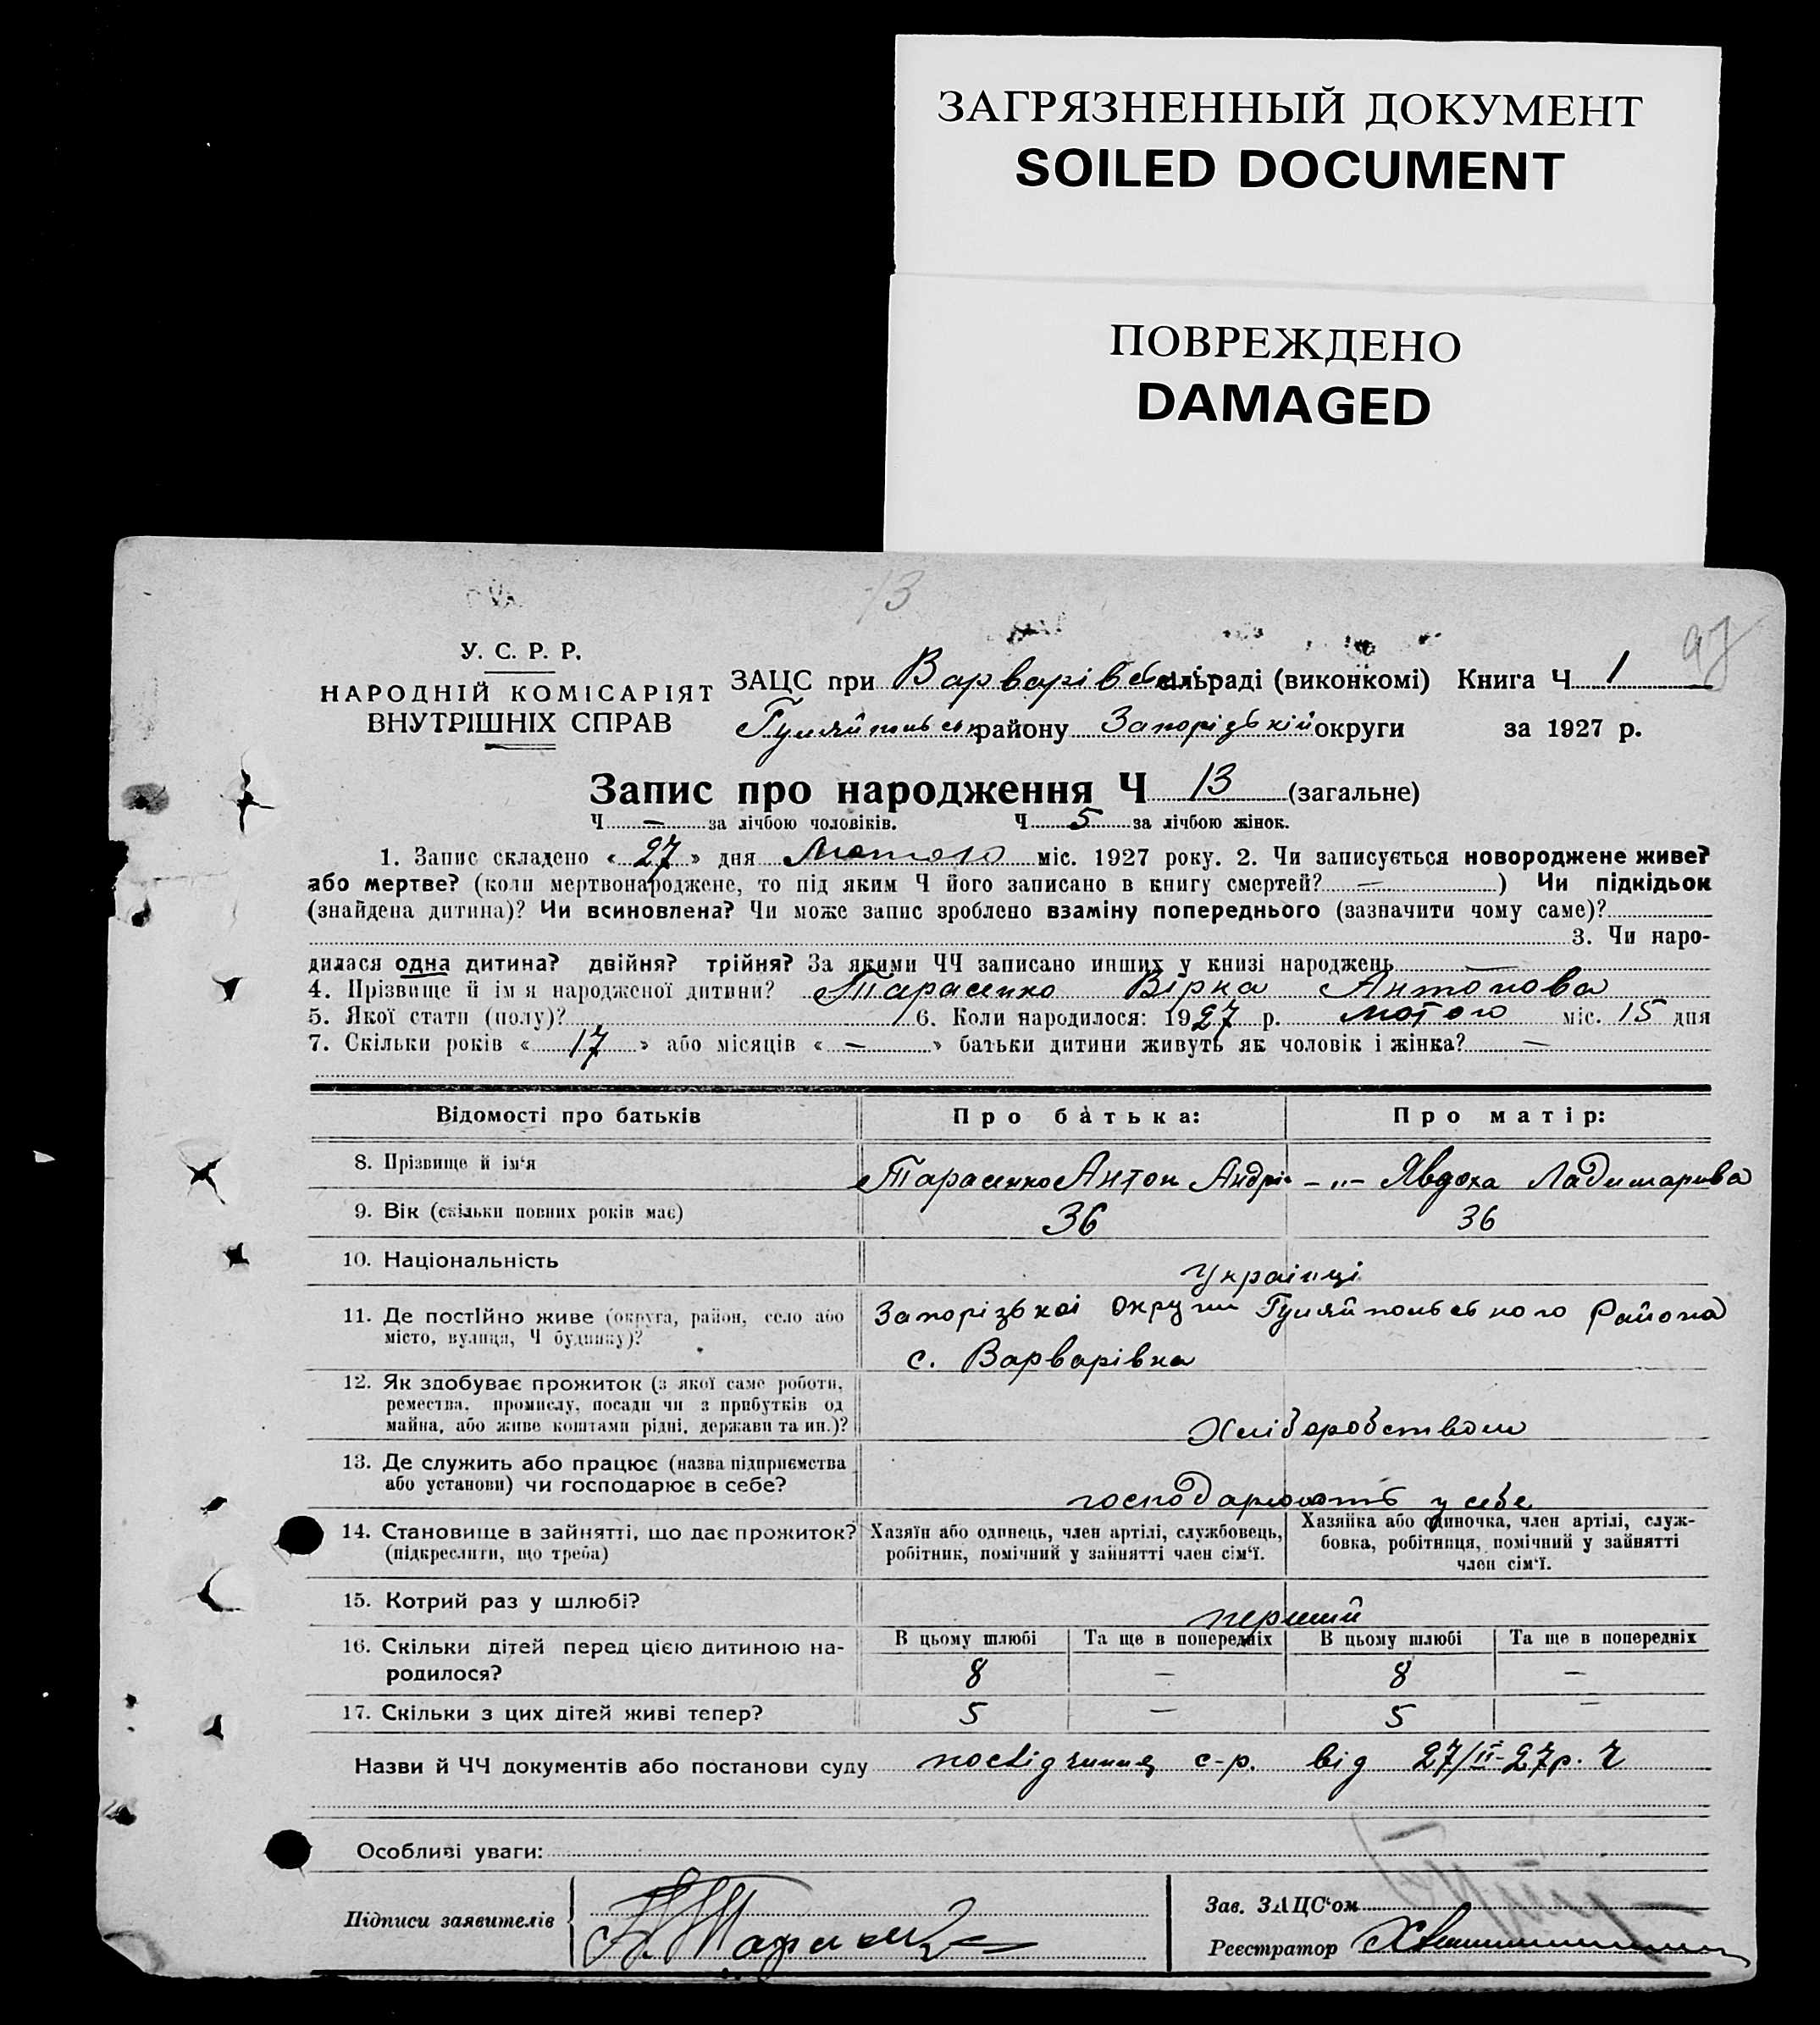 ЗАГРЯЗНЕННЫЙ ДОКУМЕНТ
SOILED DOCUMENT
ПОВРЕЖДЕНО
DAMAGED
13
97
У. С. Р. Р.
НАРОДНІЙ КОМІСАРІЯТ
ВНУТРІШНІХ СПРАВ
ЗАЦС при Варварівськ сільраді (виконкомі) Книга Ч 1
Гуляйпольськ району Запорізькій округи за 1927 р.
Запис про народження Ч 13 (загальне)
Ч — за лічбою чоловіків. Ч 5 за лічбою жінок.
1. Запис складено « 27 » дня Лютого міс. 1927 року. 2. Чи записується новороджене живе?
або мертве? (коли мертвонароджене, то під яким Ч його записано в книгу смертей? — ) Чи підкідьок
(знайдена дитина)? Чи всиновлена? Чи може запис зроблено взаміну попереднього (зазначити чому саме)?
3. Чи наро-
дилася одна дитина? двійня? трійня? За якими ЧЧ записано инших у книзі народжень —
4. Прізвище й ім'я народженої дитини? Тарасенко Вірка Антонова
5. Якої стати (полу)? 6. Коли народилося: 1927 р. лютого міс. 15 дня
7. Скільки років « 17 » або місяців « — » батьки дитини живуть як чоловік і жінка? —
Відомості про батьків Про батька: Про матір:
8. Прізвище й ім'я Тарасенко Антон Андрі -"- Явдоха
9. Вік (скільки повних років має) 36 36
10. Національність Українці
11. Де постійно живе (округа, район, село або Запорізькоі Округи Гуляйпольського Района
місто, вулиця, Ч будинку)? с. Варварівка
12. Як здобуває прожиток (з якої саме роботи,
ремества, промислу, посади чи з прибутків од
майна, або живе коштами рідні, держави та ин.)? Хліборобством
13. Де служить або працює (назва підприємства
або установи) чи господарює в себе? господарюють у себе
14. Становище в зайнятті, що дає прожиток? Хазяїн або одинець, член артілі, службовець, Хазяйка або одиночка, член артілі, служ-
(підкреслити, що треба) робітник, помічний у зайнятті член сім'ї. бовка, робітниця, помічний у зайнятті
член сім'ї.
15. Котрий раз у шлюбі? перший
16. Скільки дітей перед цією дитиною на- В цьому шлюбі Та ще в попередніх В цьому шлюбі Та ще в попередніх
родилося? 8 — 8 —
17. Скільки з цих дітей живі тепер? 5 — 5 —
Назви й ЧЧ документів або постанови суду посвідчиння с-р. від 27/II-27р.
Особливі уваги:
Підписи заявителів
Зав. ЗАЦС'ом
Реєстратор